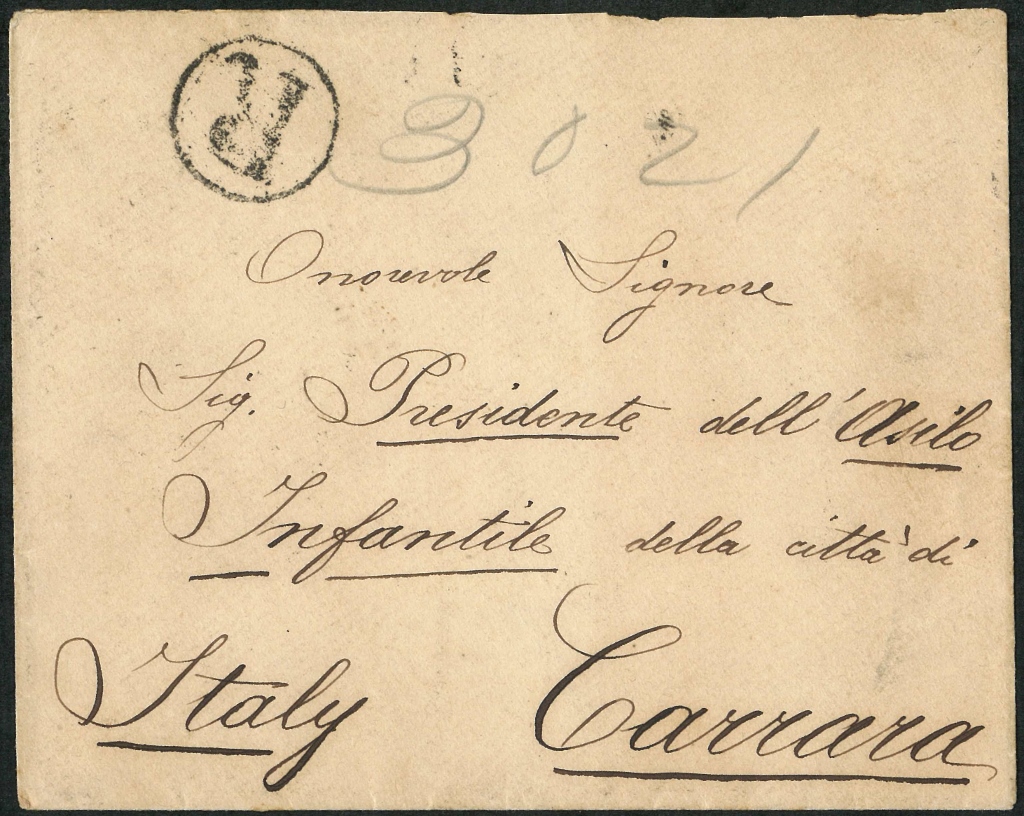 R 3021
Onorevole Signore
Sig. Presidente dell'Asilo
Infantile della città di
Italy Carrara